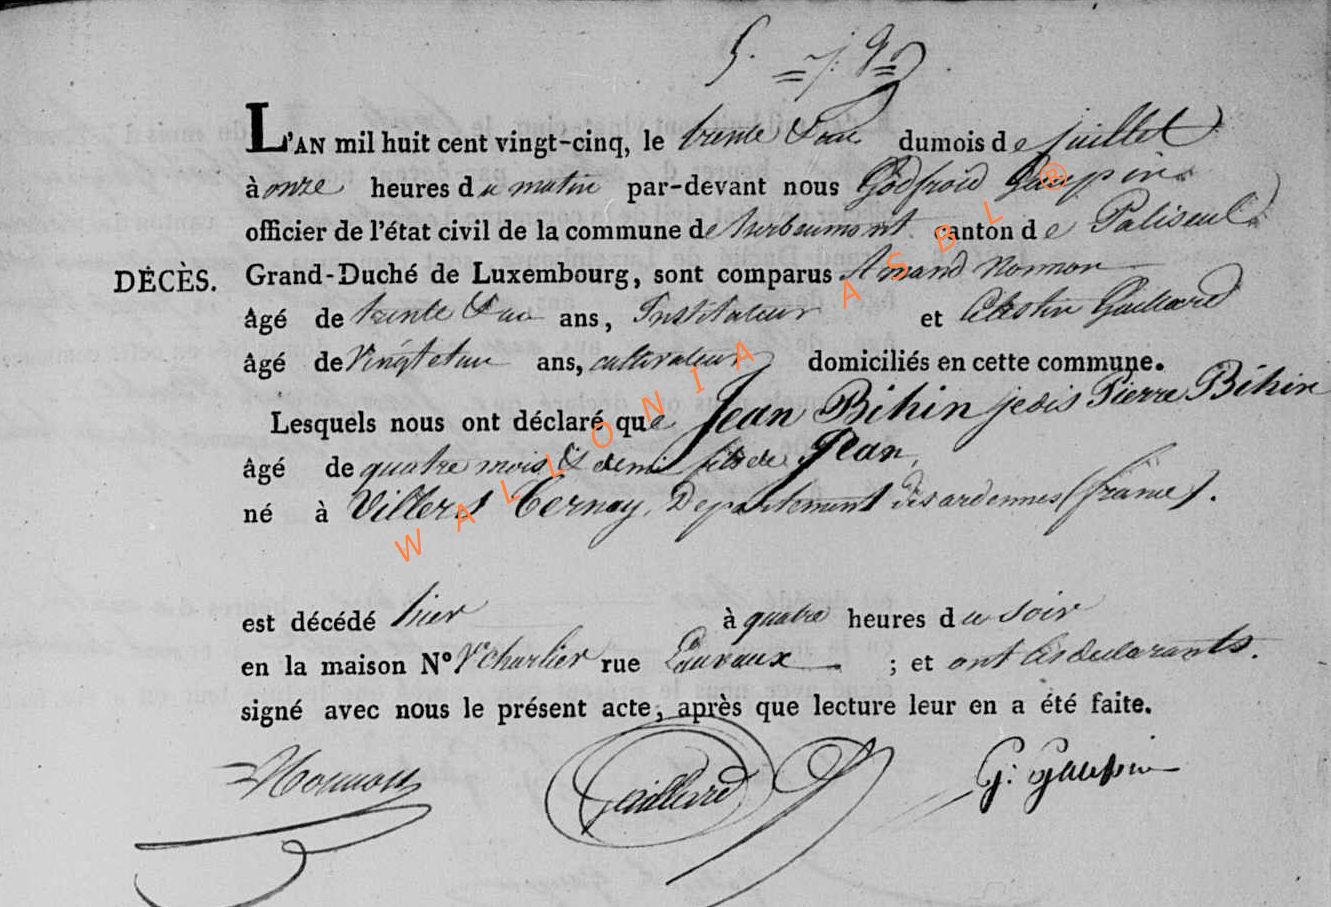 L'AN mil huit cent vingt-cinq, le trente & un du mois de juillet
à onze heures du matin par-devant nous Godfroid Gaupin
officier de l'état civil de la commune de herbeumont canton de Paliseul
DÉCÈS. Grand-Duché de Luxembourg, sont comparus Amand Nonnon
âgé de trente & un ans, Instituteur et Célestin Gaillard
âgé de Vingt et un ans, cultivateur domiciliés en cette commune.
Lesquels nous ont déclaré que Jean Bihin je dis Pierre Bihin
âgé de quatre mois & demi fils de Jean
né à Villers Cernay, Departement des ardennes (france).
est décédé hier à quatre heures du soir
en la maison N° Ve Charlier rue ; et ont les declarants
signé avec nous le présent acte, après que lecture leur en a été faite.
Nonnon Gaillard G: Gaupin
WALLONIA ASBL ®